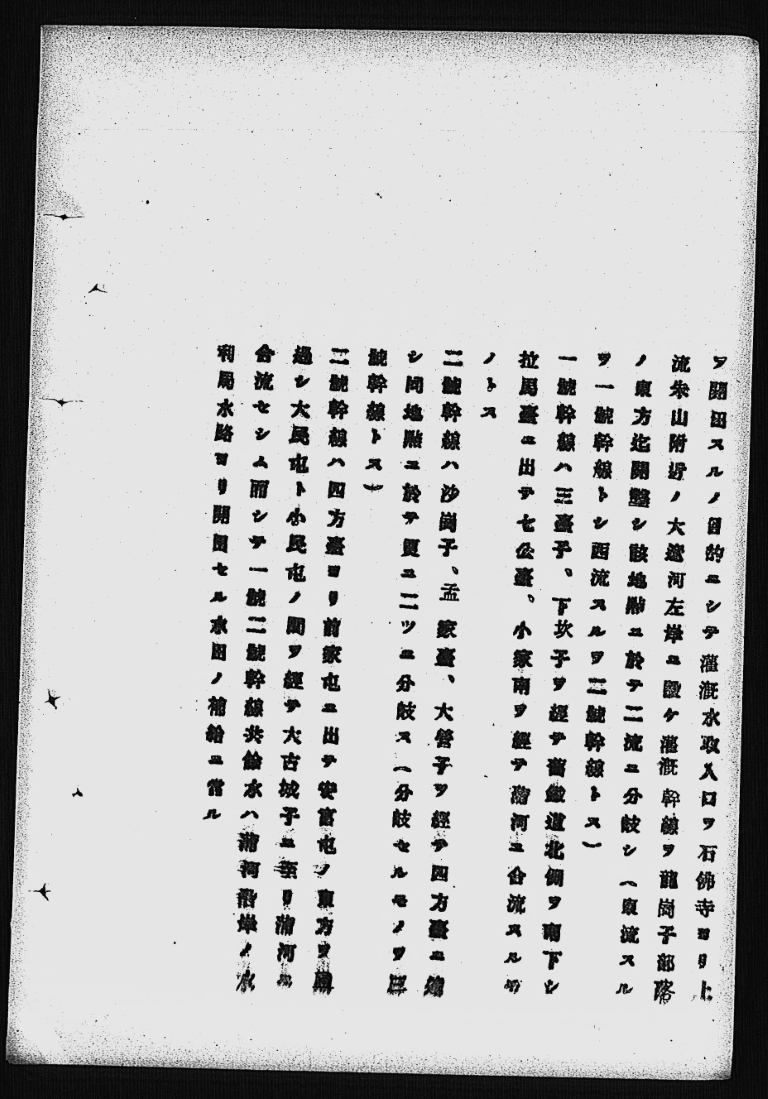 ヲ開田スルノ目的ニシテ灌漑水取入口ヲ石佛寺ヨリ上
流朱山附近ノ大遼河左岸ニ設ケ灌漑幹線ヲ龍崗子部落
ノ東方迄開鑿シ該地點ニ於テ二流ニ分岐シ（東流スル
ヲ一號幹線トシ西流スルヲ二號幹線トス）
一號幹線ハ三臺子、下坎子ヲ經テ舊鐵道北側ヲ南下シ
拉馬臺ニ出テ七公臺、小家南ヲ經テ蒲河ニ合流スルモ
ノトス
二號幹線ハ沙崗子、孟家臺、大管子ヲ經テ四方臺ニ達
シ同地點ニ於テ更ニ二ツニ分岐ス（分岐セルモノヲ三
號幹線トス）
三號幹線ハ四方臺ヨリ前家屯ニ出テ安富屯ノ東方ヲ通
過シ大民屯ト小民屯ノ間ヲ經テ大古城子ニ至リ蒲河ニ
合流セシム而シテ一號二號幹線共餘水ハ蒲河沿岸ノ水
利局水路ヨリ開田セル水田ノ補給ニ當ル